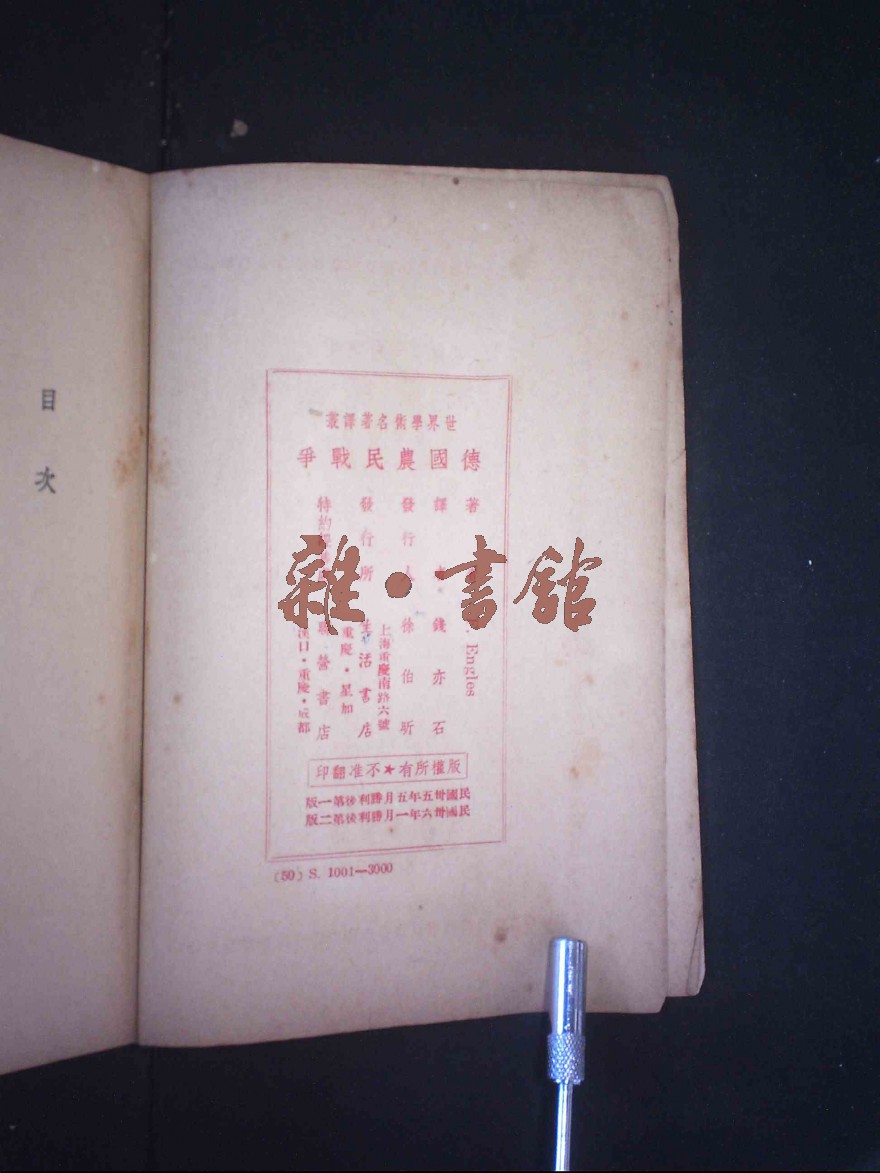 目次
世界學術名著譯叢
德國農民戰爭
著
Engles
譯
錢亦石
發行人
徐伯昕
上海重慶南路六號
發行所
生活書店
重慶・星加
特約
聯營書店
漢口・重慶・成都
版權所有★不准翻印
民國卅五年五月勝利後第一版
民國卅六年一月勝利後第二版
(50) S. 1001—3000
雜・書館